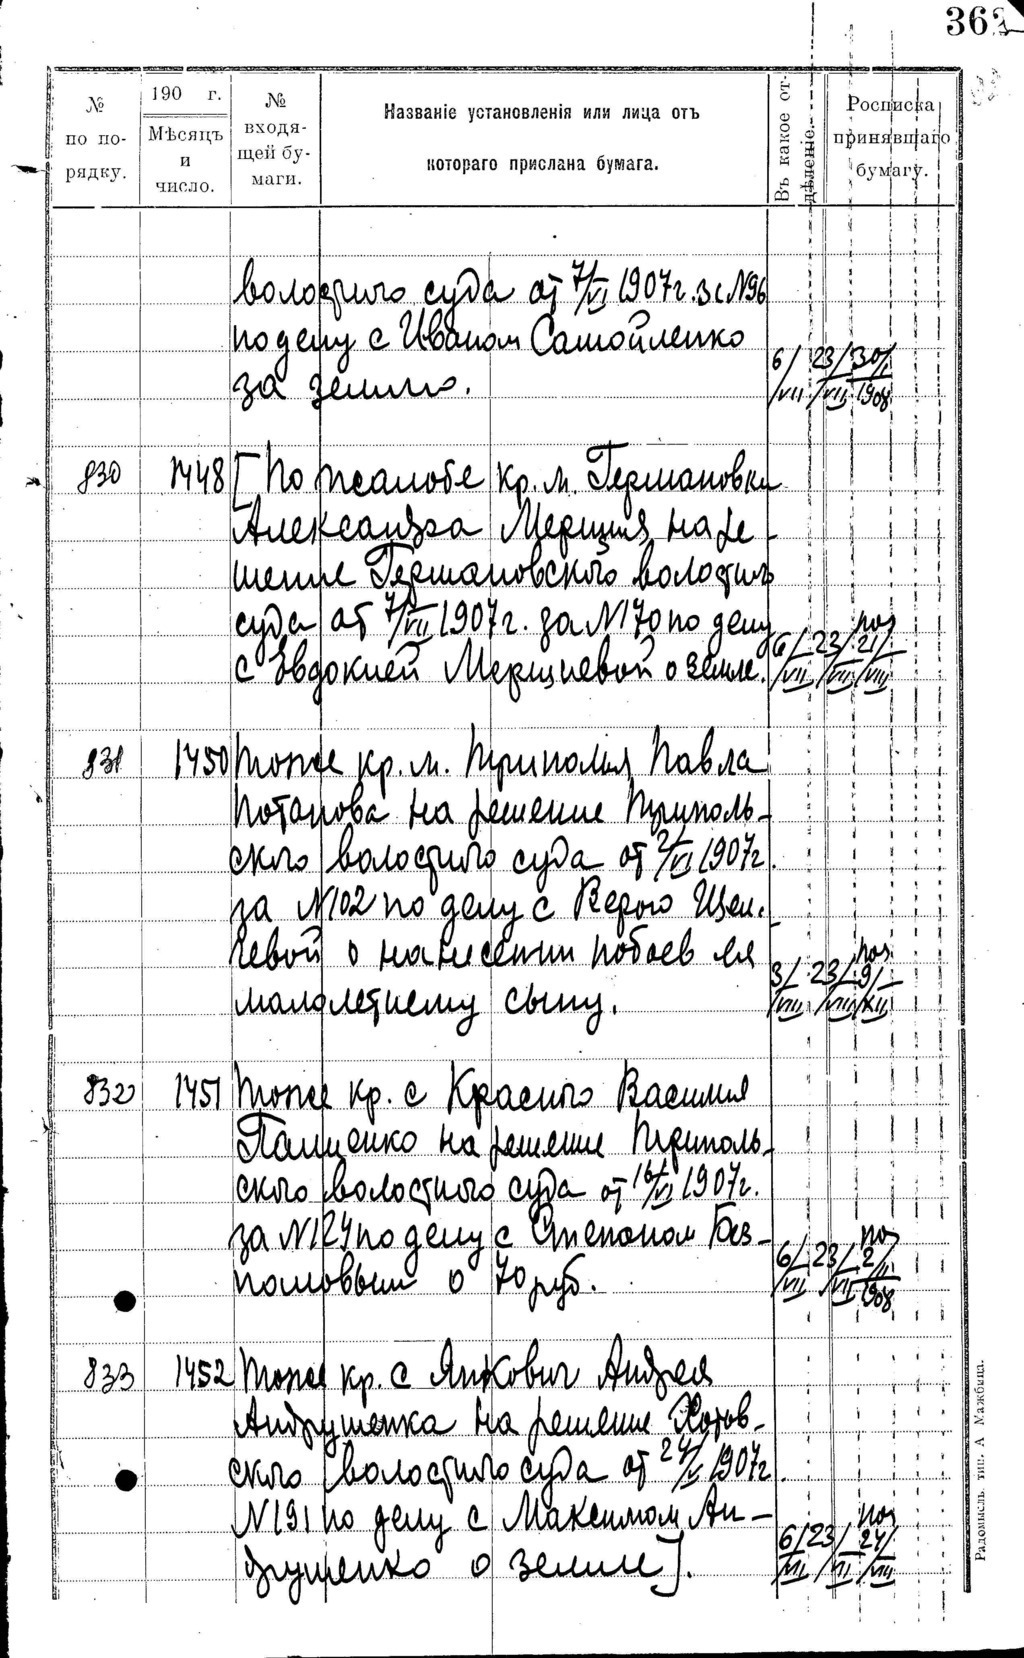 362
№ по по-рядку.
190 г. Мѣсяцъ и число.
№ входя-щей бу-маги.
Названіе установленія или лица отъ
котораго прислана бумага.
Въ какое от-дѣленіе.
Росписка принявшаго бумагу.
волостного суда от 7/VI 1907 г. за №96
по делу с Иваном Самойленко
за землю. 6/VII 23/VII 30/I 1908
830 1448 [По жалобе кр. м. Германовки
Александра Мерщия на ре-
шение Германовского волостного
суда от 7/VII 1907 г. за №170 по делу
с Евдокией Мерщиевой о земле. 6/VII 23/VII 21/VIII
831 1450 Тоже кр. м. Триполья Павла
Потапова на решение Триполь-
ского волостного суда от 2/VI 1907 г.
за №102 по делу с Верою
о нанесении побоев ея
малолетнему сыну. 3/VIII 23/VIII 9/XII
832 1451 Тоже кр. с Красного Василия
Пащенко на решение Триполь-
ского волостного суда от 16/VI 1907 г.
за №124 по делу с Степаном Без-
о 70 руб. 6/VII 23/VII 2/II 1908
833 1452 Тоже кр. с Янкович Андрея
Андрущенка на решение Хотов-
ского волостного суда от 24/V 1907 г.
№191 по делу с Максимом Ан-
друщенко о земле]. 6/VII 23/VII 24/VIII
Радомысль, тип. А Мажбица.